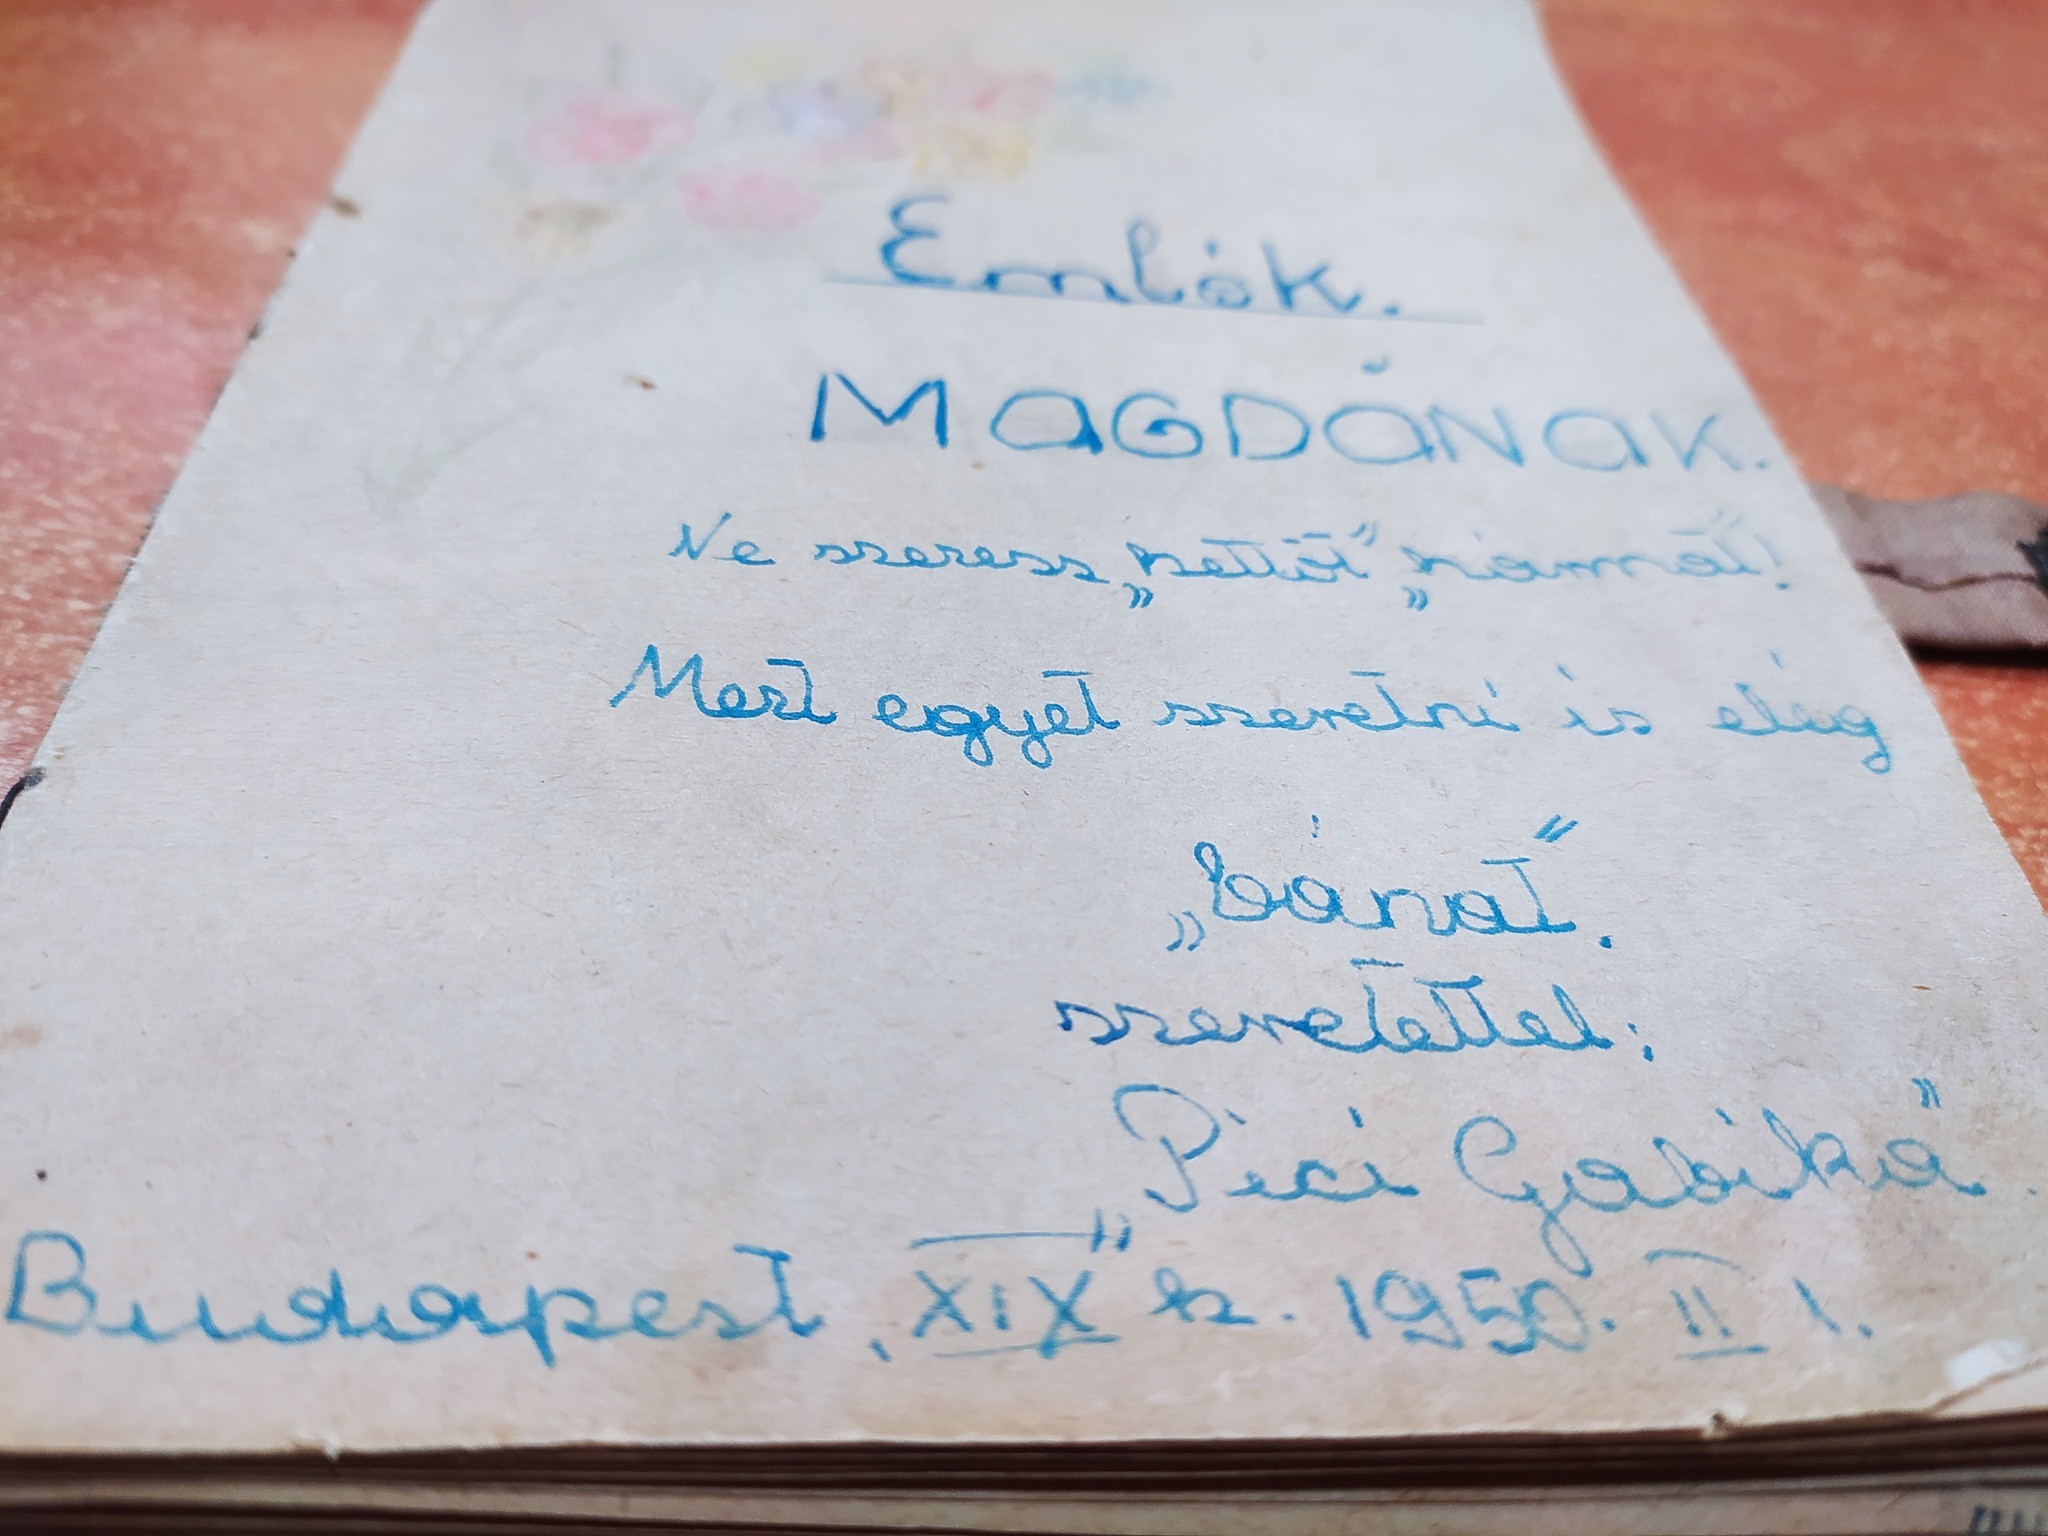 Emlék.
MAGDÁNAK.
Ne szeress „kettőt" „hármat"!
Mert egyet szeretni is elég
„bánat".
szeretettel:
„Pici Gabika".
Budapest, XIX k. 1950. II 1.